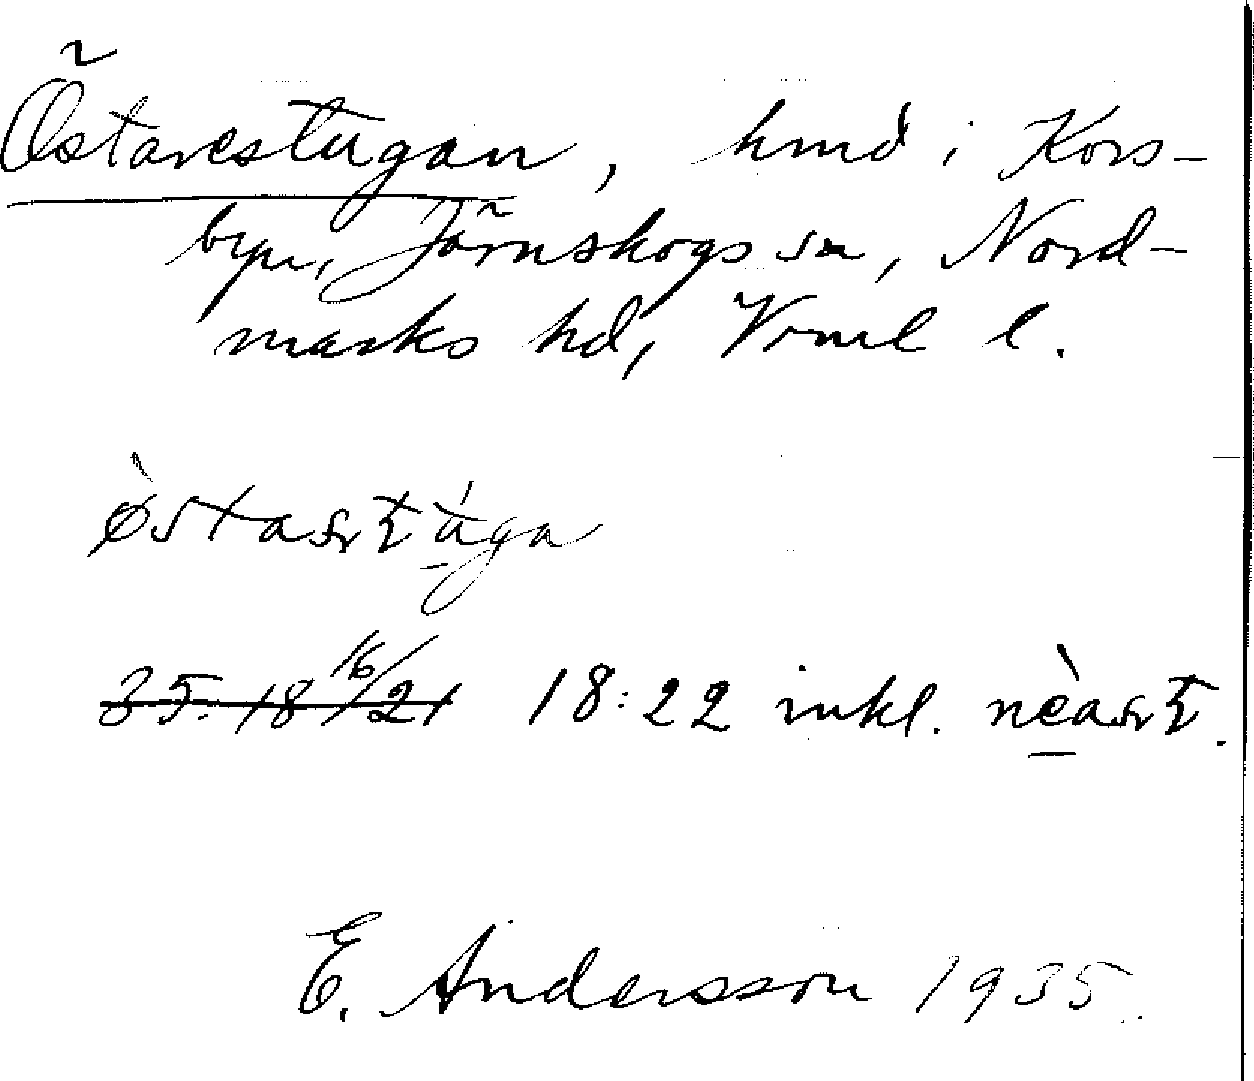 Östarestugan, hmd i Kors-
byn, Järnskogs sn, Nord-
marks hd, Vrml l.
35. 18 16/21 18:22 inkl.
E. Andersson 1935.